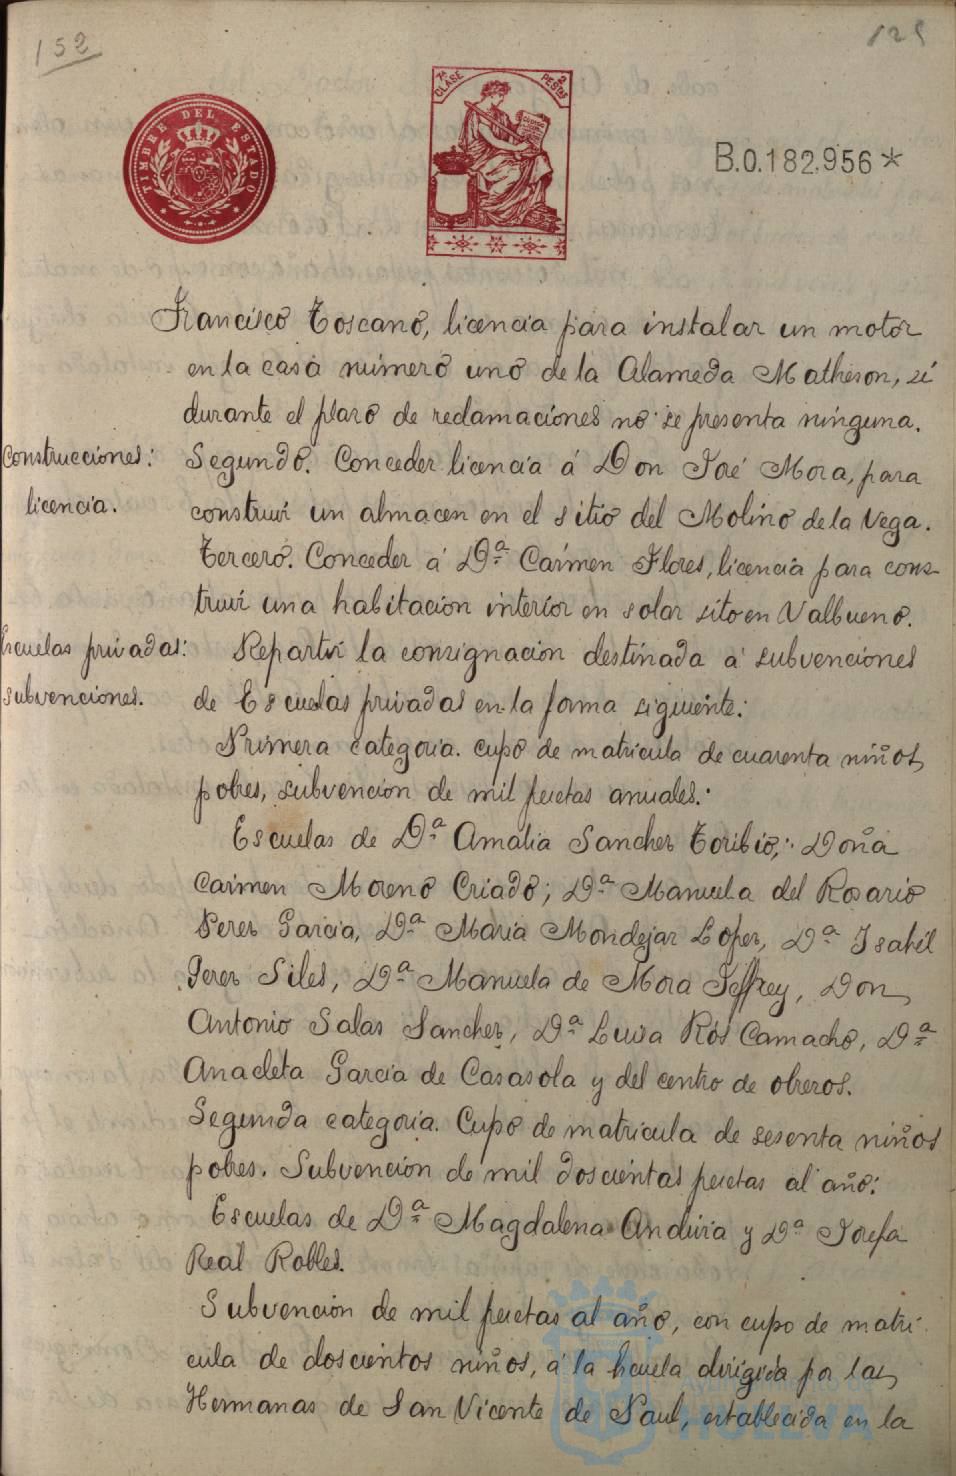 152
125
TIMBRE DEL ESTADO
7ª CLASE
2 PESETAS
B.0.182.956*
Francisco Toscano, licencia para instalar un motor
en la casa número uno de la Alameda Matheson, si
durante el plazo de reclamaciones no se presenta ninguna.
Construcciones:
licencia.
Segundo. Conceder licencia á Don José Mora, para
construir un almacen en el sitio del Molino de la Vega.
Tercero. Conceder á Dª Cármen Flores, licencia para cons-
truir una habitacion interior en solar sito en Valbueno.
Escuelas privadas:
subvenciones.
Repartir la consignacion destinada á subvenciones
de Escuelas privadas en la forma siguiente:
Primera categoria. cupo de matricula de cuarenta niños
pobres, subvencion de mil pesetas anuales.
Escuelas de Dª Amalia Sanchez Toribio; Doña
Carmen Moreno Criado; Dª Manuela del Rosario
Perez Garcia, Dª Maria Mondejar Lopez, Dª Isabel
Perez Siles, Dª Manuela de Mora Jeffrey, Don
Antonio Salas Sanchez, Dª Luisa Rós Camacho, Dª
Anacleta García de Casasola y del centro de obreros.
Segunda categoría. Cupo de matrícula de sesenta niños
pobres. Subvencion de mil doscientas pesetas al año:
Escuelas de Dª Magdalena Anduia y Dª Josefa
Real Robles.
Subvención de mil pesetas al año, con cupo de matri-
cula de doscientos niños, á la Escuela dirigida por las
Hermanas de San Vicente de Paul, establecida en la
Ayuntamiento de
HUELVA